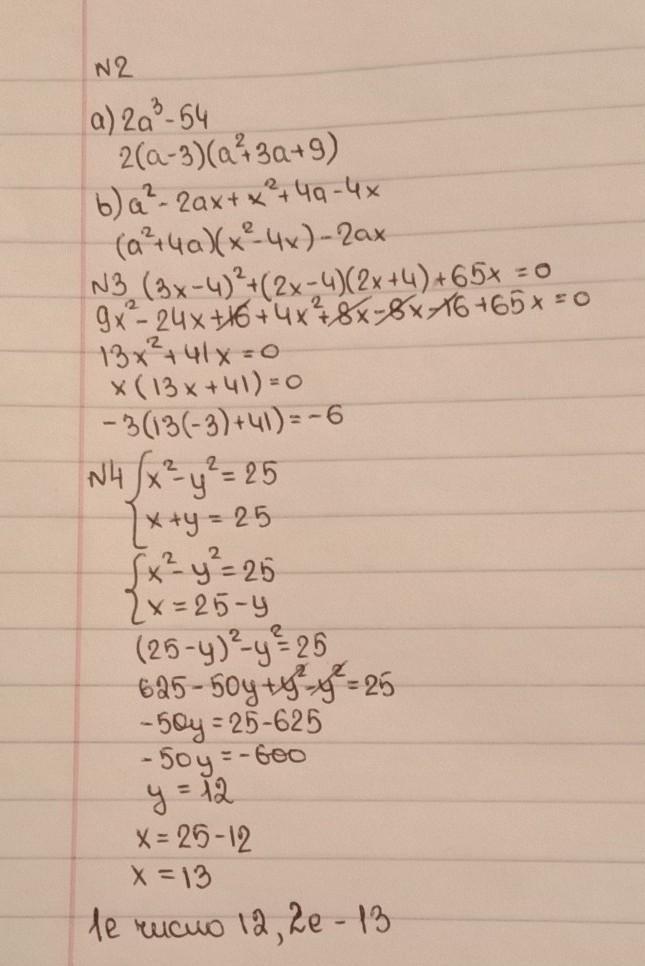 N2
a) 2a³-54
2(a-3)(a²+3a+9)
b) a²-2ax+x²+4a-4x
(a²+4a)(x²-4x)-2ax
N3 (3x-4)²+(2x-4)(2x+4)+65x=0
9x²-24x+16+4x²+8x-8x-16+65x=0
13x²+41x=0
x(13x+41)=0
-3(13(-3)+41)=-6
N4 { x²-y²=25
x+y=25
{ x²-y²=25
x=25-y
(25-y)²-y²=25
625-50y+y²-y²=25
-50y=25-625
-50y=-600
y=12
x=25-12
x=13
1е число 12, 2е - 13